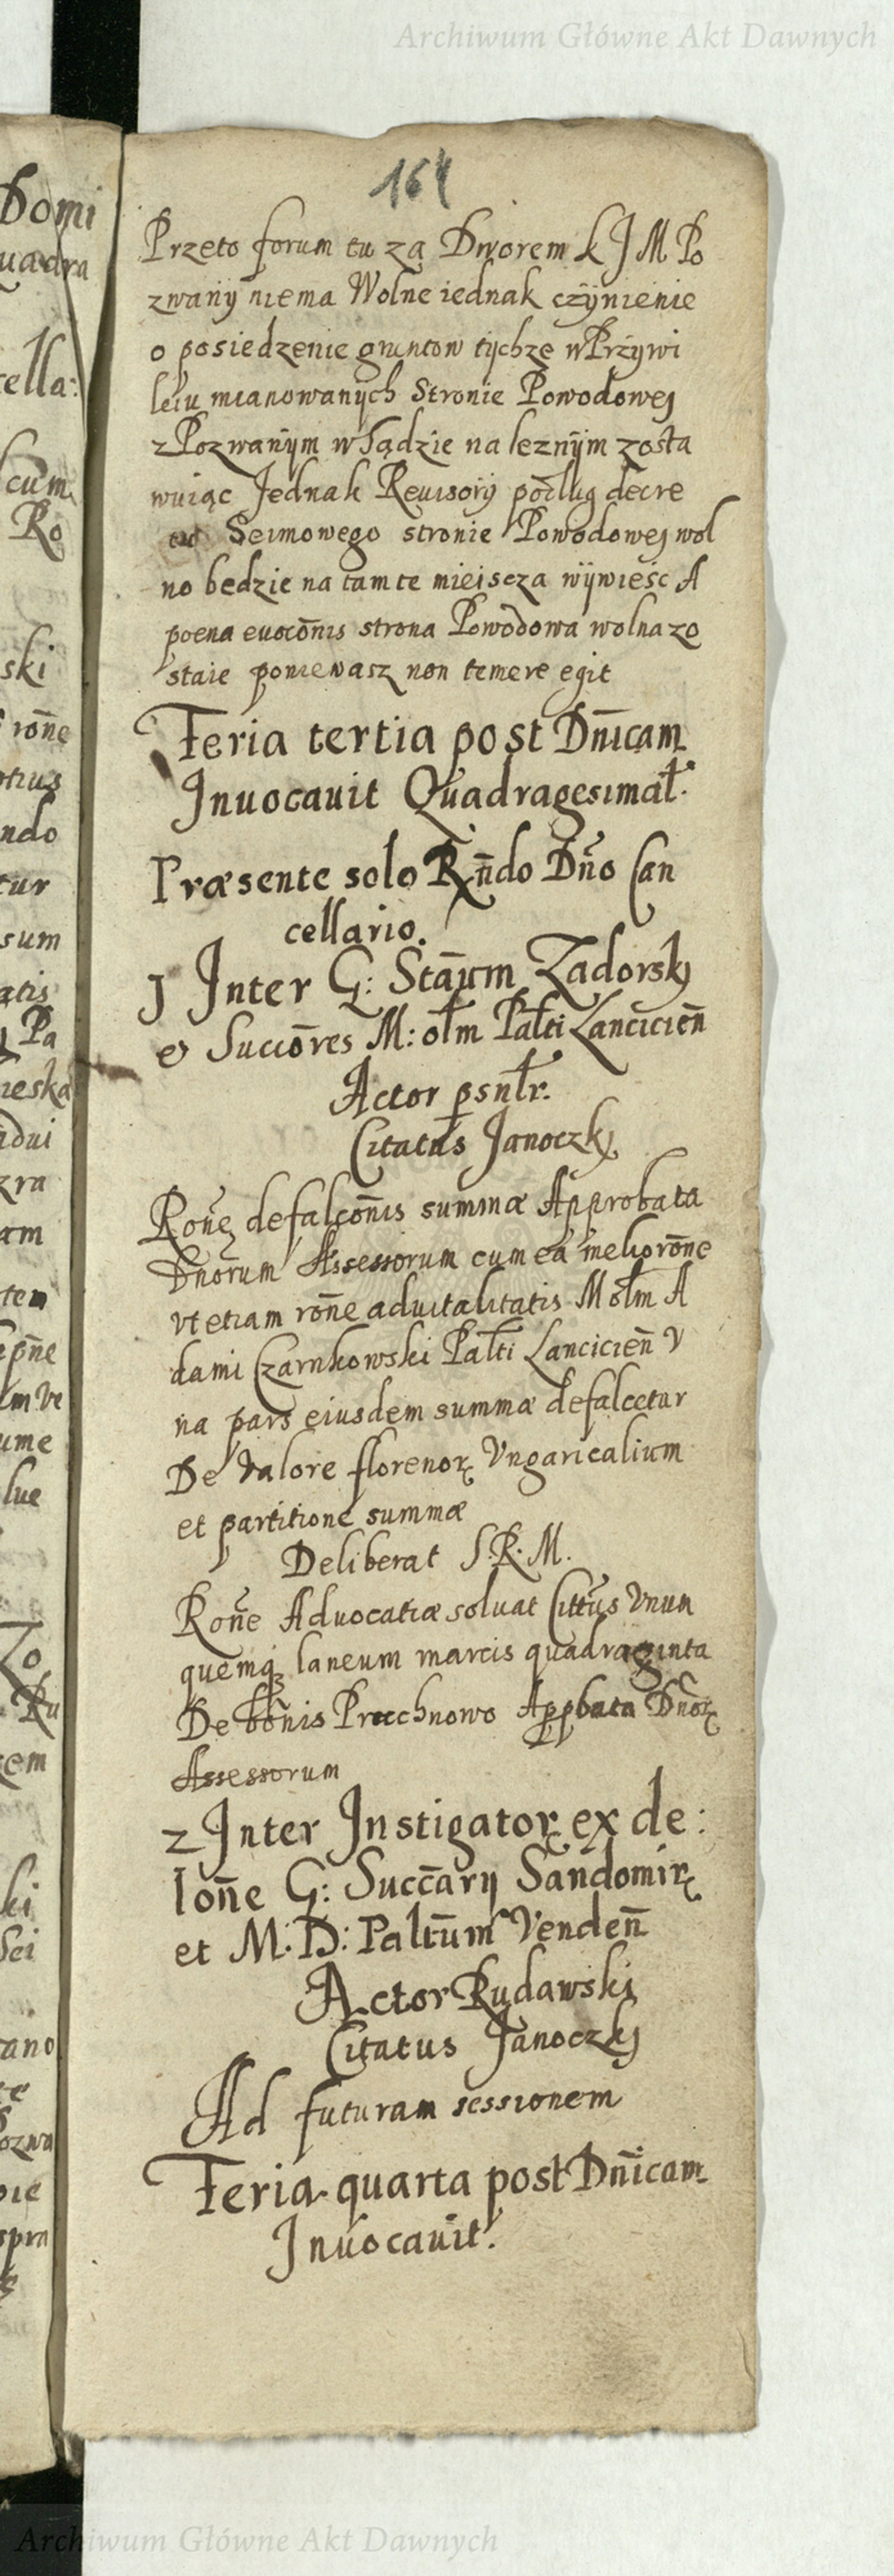 Archiwum Główne Akt Dawnych
164
Przeto forum tu za Dworem k J M Po
zwany niema Wolne iednak czÿnienie
o posiedzenie gruntow tÿchze wPrzÿwi
leiu mianowanÿch Stronie Powodoweÿ
zPozwanÿm wSądzie na leznÿm zosta
wuiąc Jednak Reuisorÿ podlug decre
tu Seimowego stronie Powodoweÿ wol
no bedzie na tam te mieiscza wÿwieśc A
poena euocōnis strona Powodowa wolna zo
staie poniewasz non temere egit
Feria tertia post Dn̄icam
Inuocauit Quadragesimal:
Præsente solo Rn̄do Dn̄o Can
cellario.
J Inter G: Stān̄um Zadorskÿ
et Succōres M: olm Palti Lancicien̄
Actor psnlr.
Citatus Janoczkÿ
Ron̄e defalcōnis summæ Approbata
Dnorum Assessorum cum ea meliorōne
vt etiam rōne aduitalitatis M olm A
dami Czarnkowski Palti Lancicien̄ V
na pars eiusdem summæ defalcetur
De valore florenorꝝ Vngaricalium
et partitione summæ
Deliberat S. R. M.
Ron̄e Aduocatiæ soluat Cittūs Vnun
quemqꝫ laneum marcis quadraginta
De bōnis Precchnowo Appbata Dnorꝝ
Assessorum
2 Inter Instigatorꝝ ex de:
lon̄e G: Succ̄arÿ Sandomirꝝ
et M. D: Paltūm Venden̄
Actor Rudawski
Citatus Janoczkÿ
Ad futuram sessionem
Feria quarta post Dn̄icam
Inuocauit.
Archiwum Główne Akt Dawnych